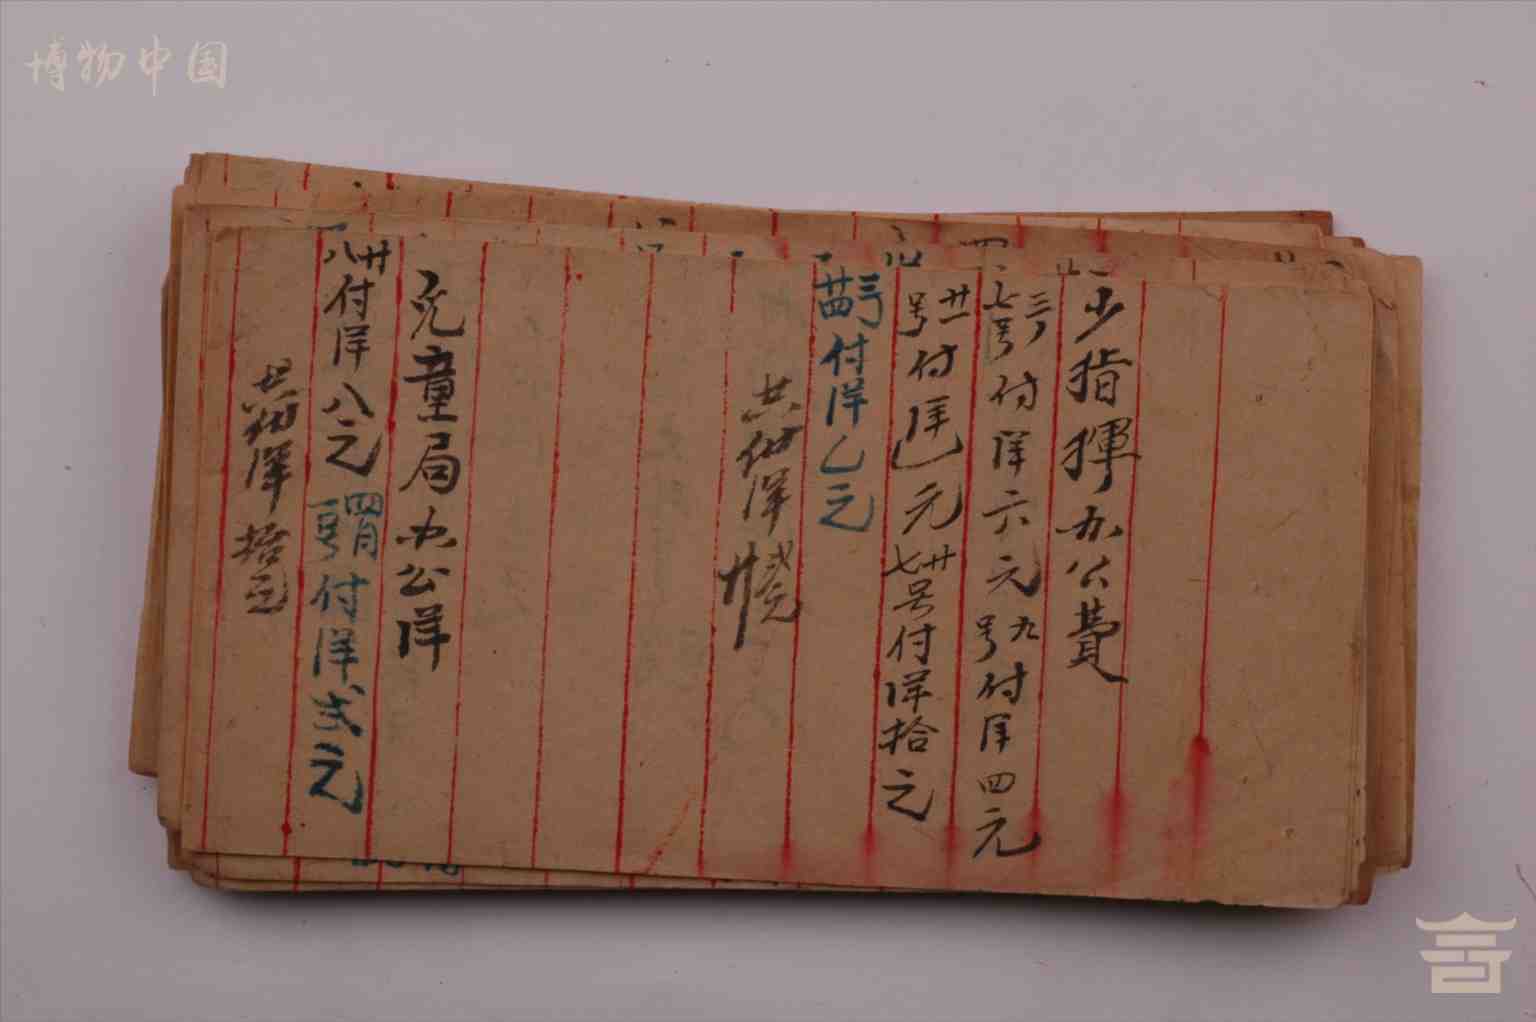 博物中国
少指揮办公费
三月七号付洋六元九号付洋四元
廿一号付洋元廿七号付洋拾元
三号付洋乙元
共付洋
児童局办公洋
廿八付洋八元四月号付洋弍元
共付洋拾元